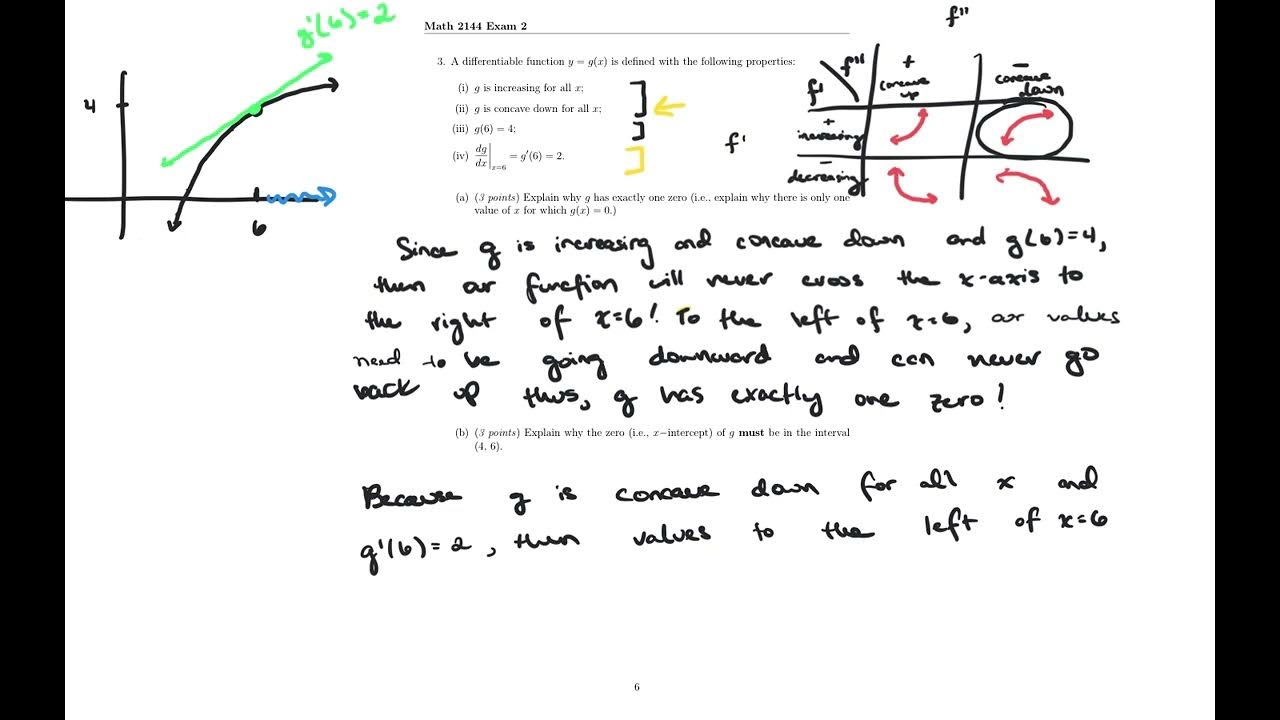 g'(6)=2
4
6
Math 2144 Exam 2
3. A differentiable function y = g(x) is defined with the following properties:
(i) g is increasing for all x;
(ii) g is concave down for all x;
(iii) g(6) = 4;
(iv) dg/dx|x=6 = g′(6) = 2.
f"
f'
f"
f'
+
concave
up
−
concave
down
+
increasing
−
decreasing
(a) (3 points) Explain why g has exactly one zero (i.e., explain why there is only one
value of x for which g(x) = 0.)
Since g is increasing and concave down and g(6)=4,
then our function will never cross the x-axis to
the right of x=6! To the left of x=6, our values
need to be going downward and can never go
back up thus, g has exactly one zero!
(b) (3 points) Explain why the zero (i.e., x−intercept) of g must be in the interval
(4, 6).
Because g is concave down for all x and
g'(6)=2, then values to the left of x=6
6